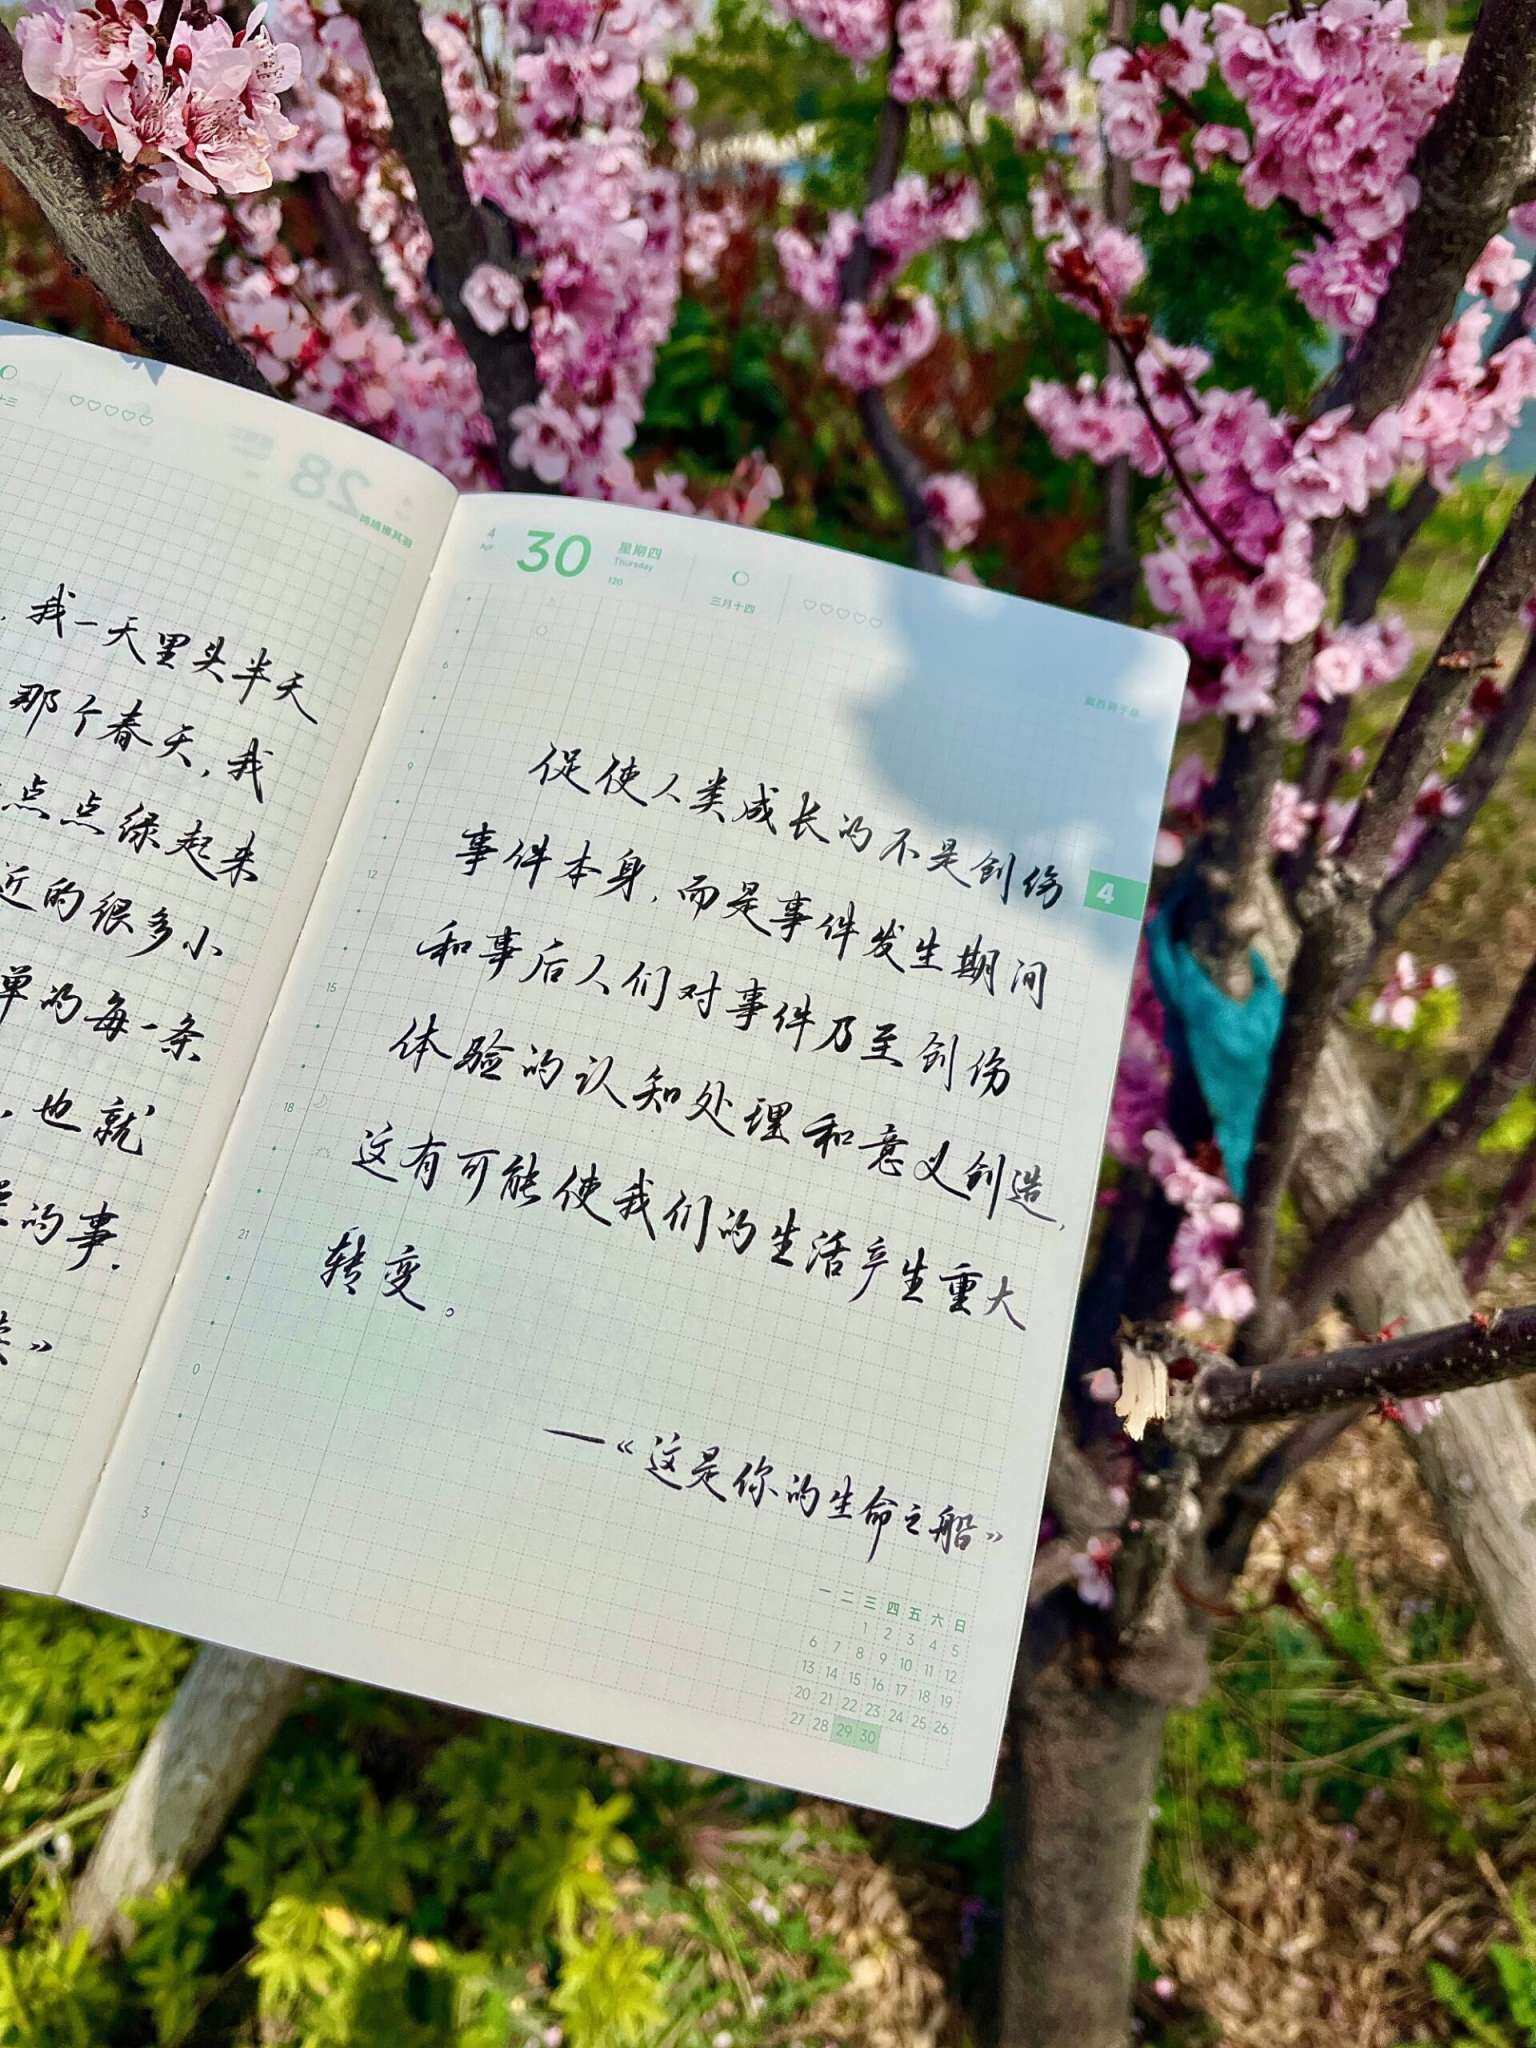 十三
28
我一天里头半天
那个春天，我
点点绿起来
近的很多小
单的每一条
，也就
的事．
》
4
30
星期四
Thursday
120
三月十四
6
9
12
15
18
21
0
3
4
促使人类成长的不是创伤
事件本身，而是事件发生期间
和事后人们对事件乃至创伤
体验的认知处理和意义创造，
这有可能使我们的生活产生重大
转变。
—《这是你的生命之船》
一 二 三 四 五 六 日
1 2 3 4 5
6 7 8 9 10 11 12
13 14 15 16 17 18 19
20 21 22 23 24 25 26
27 28 29 30